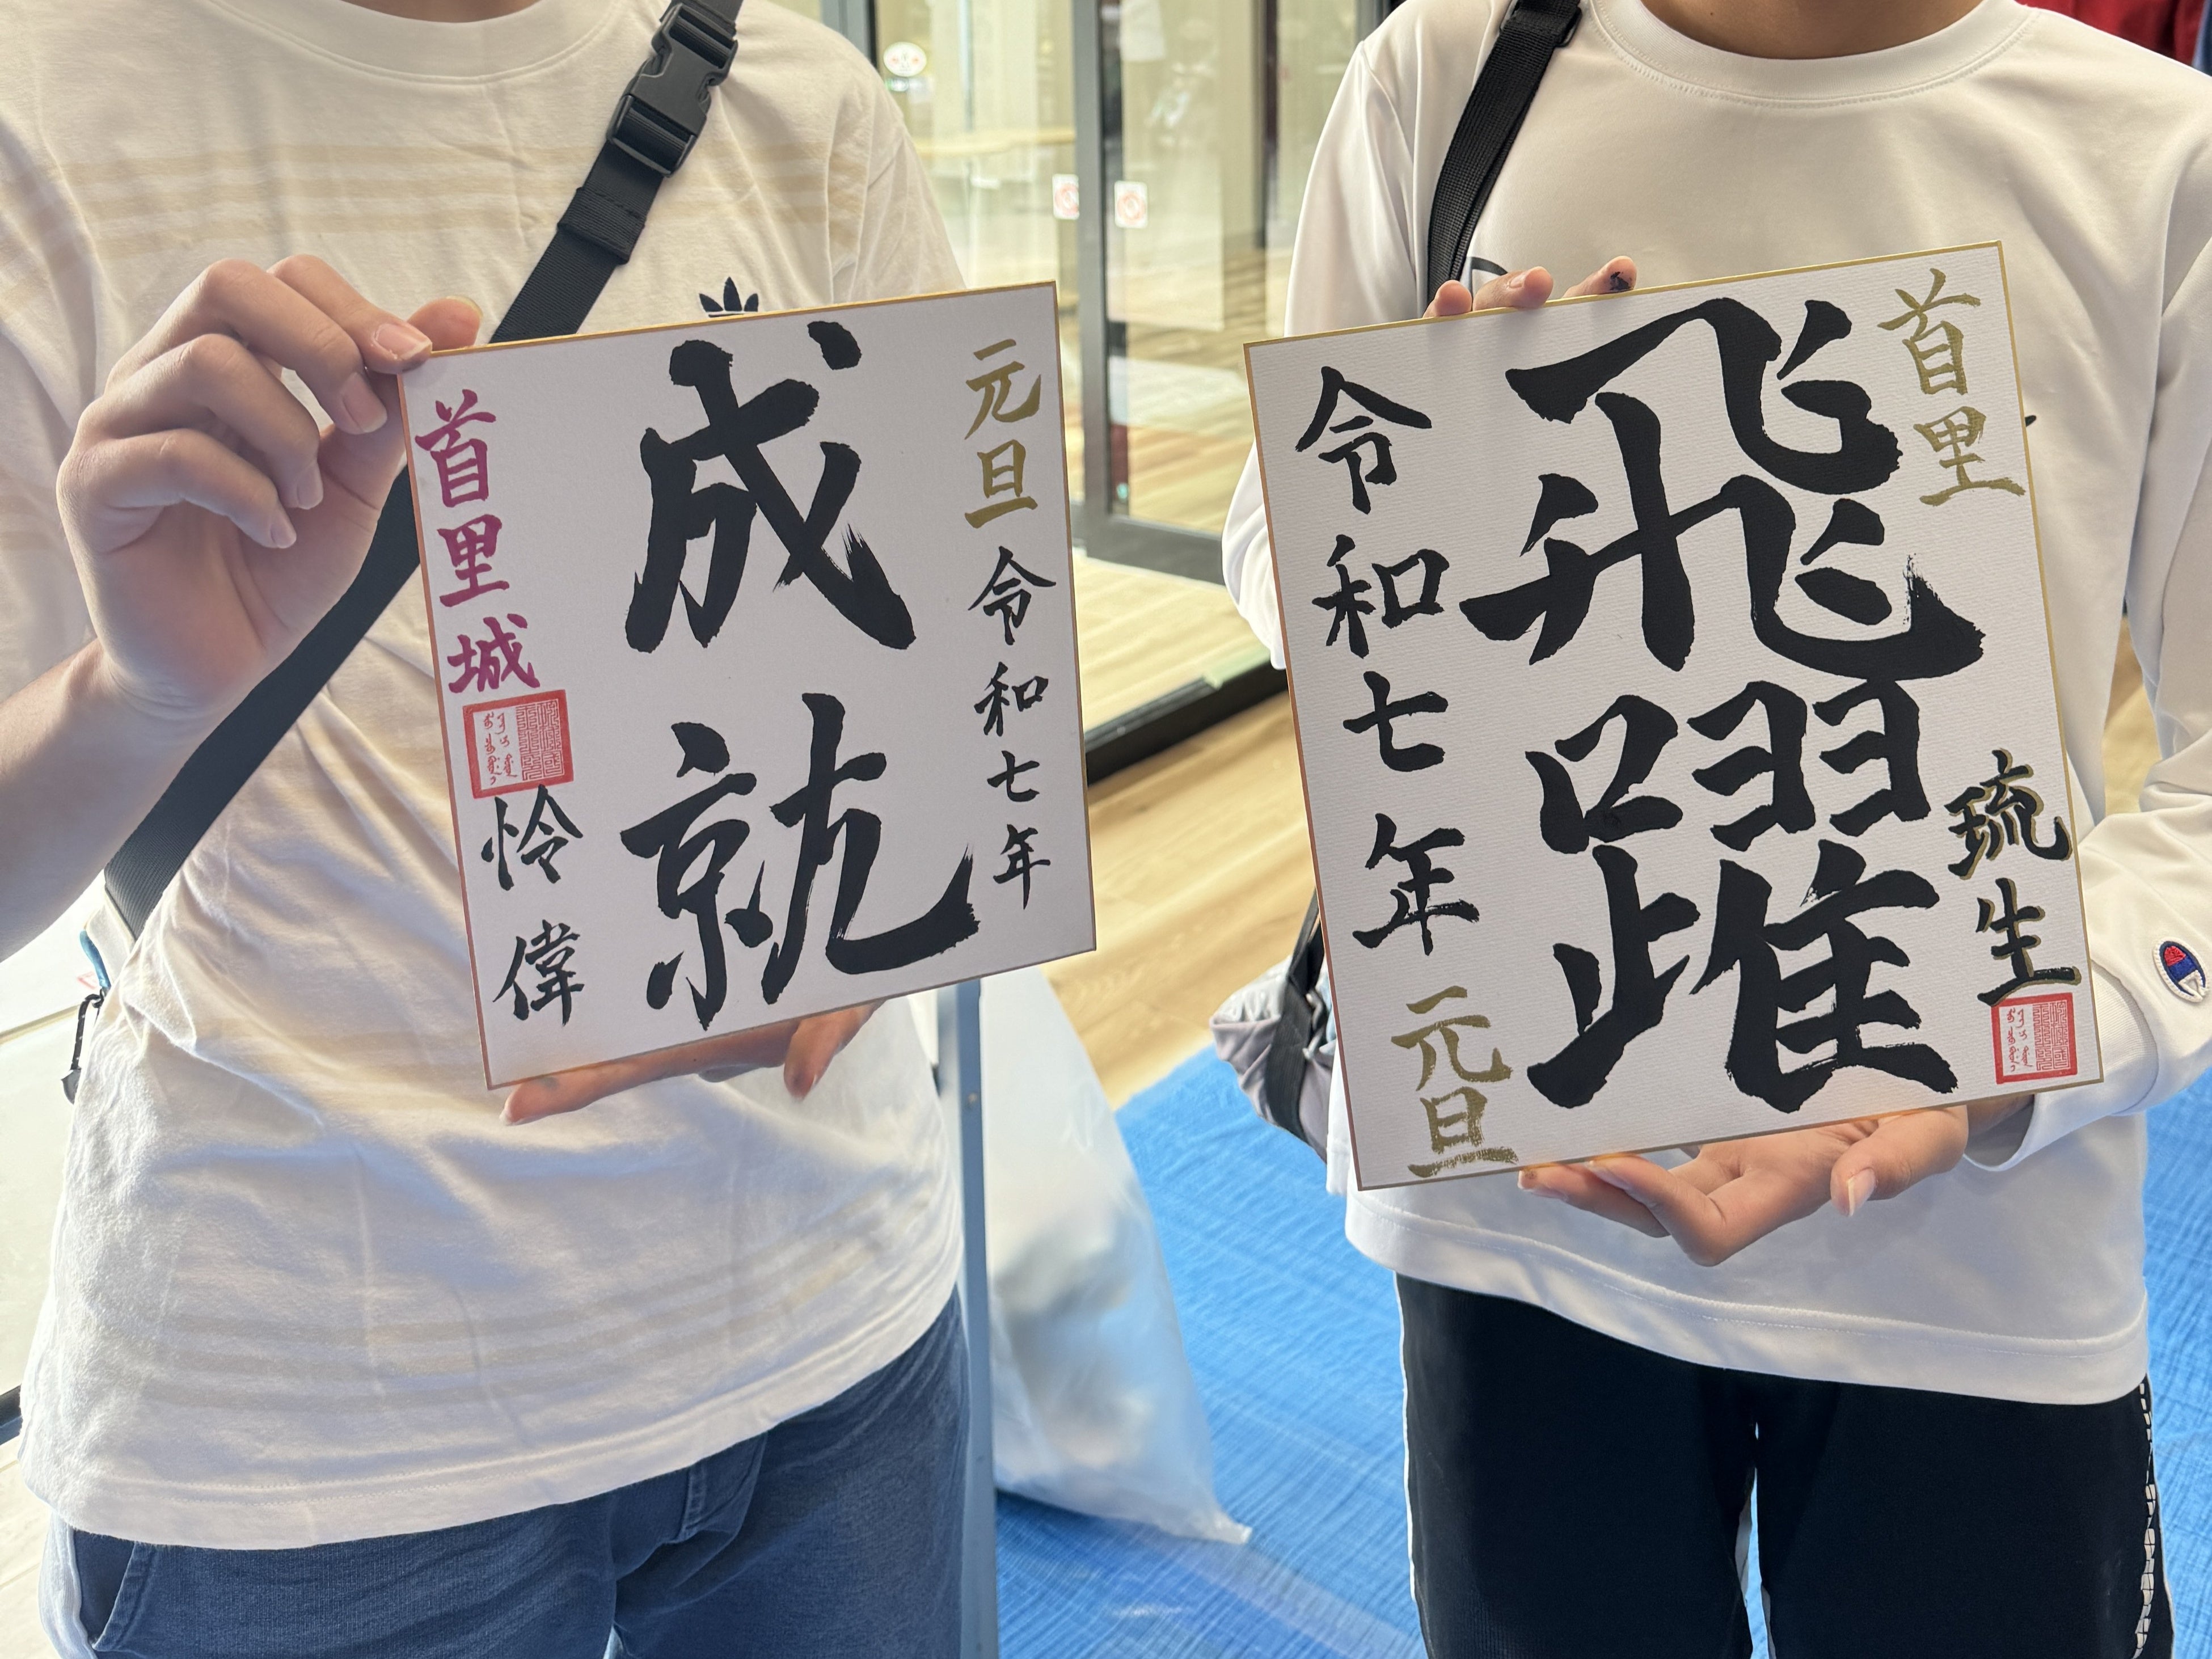 元旦 令和七年
成就
首里城
怜偉
首里
琉生
飛躍
令和七年 元旦